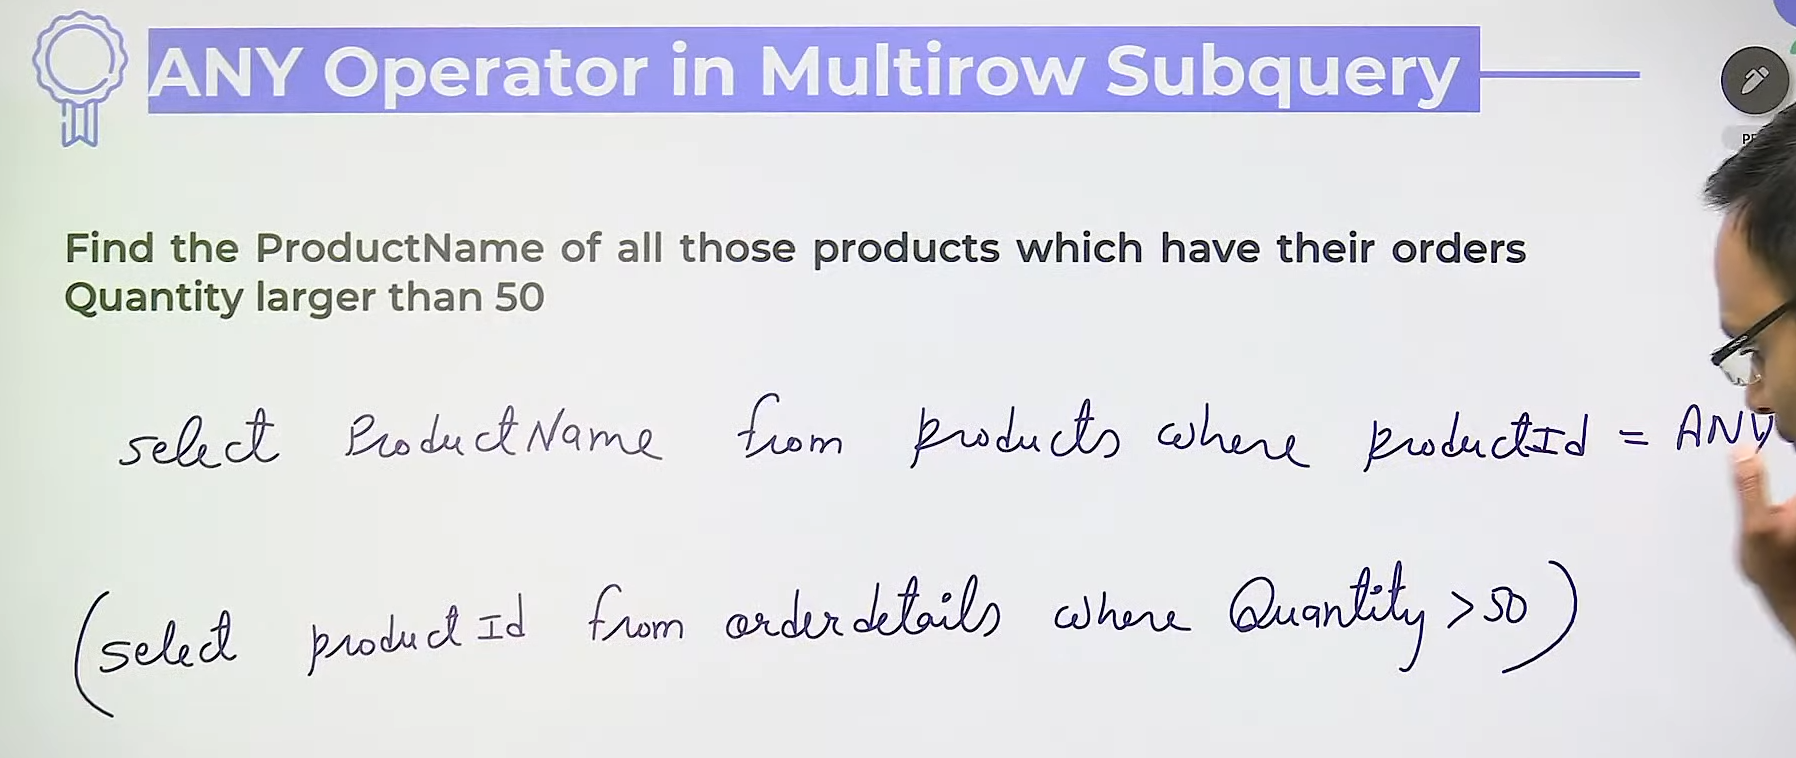 ANY Operator in Multirow Subquery
Find the ProductName of all those products which have their orders
Quantity larger than 50
select ProductName from products where productId = ANY
(select productId from orderdetails where Quantity >50)